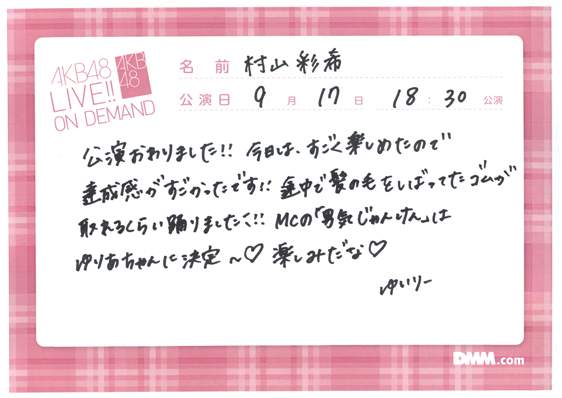 AKB48
LIVE!!
ON DEMAND
AKB
48
名前 村山彩希
公演日 9月17日 18:30公演
公演おわりました!! 今日は、すごく楽しめたので
達成感がすごかったです!! 途中で髪の毛をしばってたゴムが
取れるくらい踊りました!! MCの「男気じゃんけん」は
ゆりあちゃんに決定～♡ 楽しみだな♡
ゆいりー
DMM.com